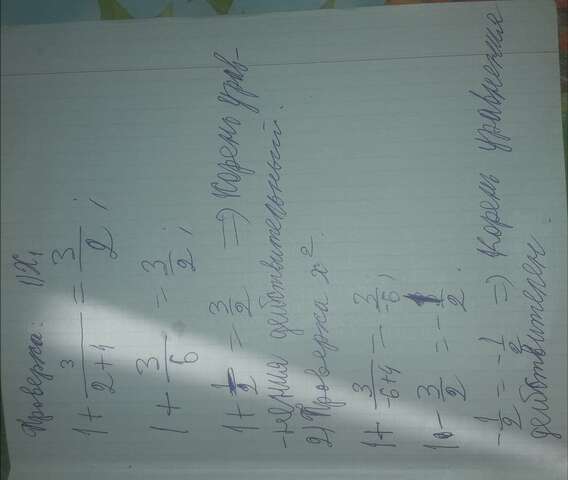 Проверка: 1) x₁
1 + 3/(2+4) = 3/2;
1 + 3/6 = 3/2;
1 + 1/2 = 3/2 => Корень урав-
-нения действительный.
2) Проверка x².
1 + 3/(-6+4) = 3/-6;
1 - 3/2 = -1/2.
-1/2 = -1/2 => Корень уравнения
действителен.